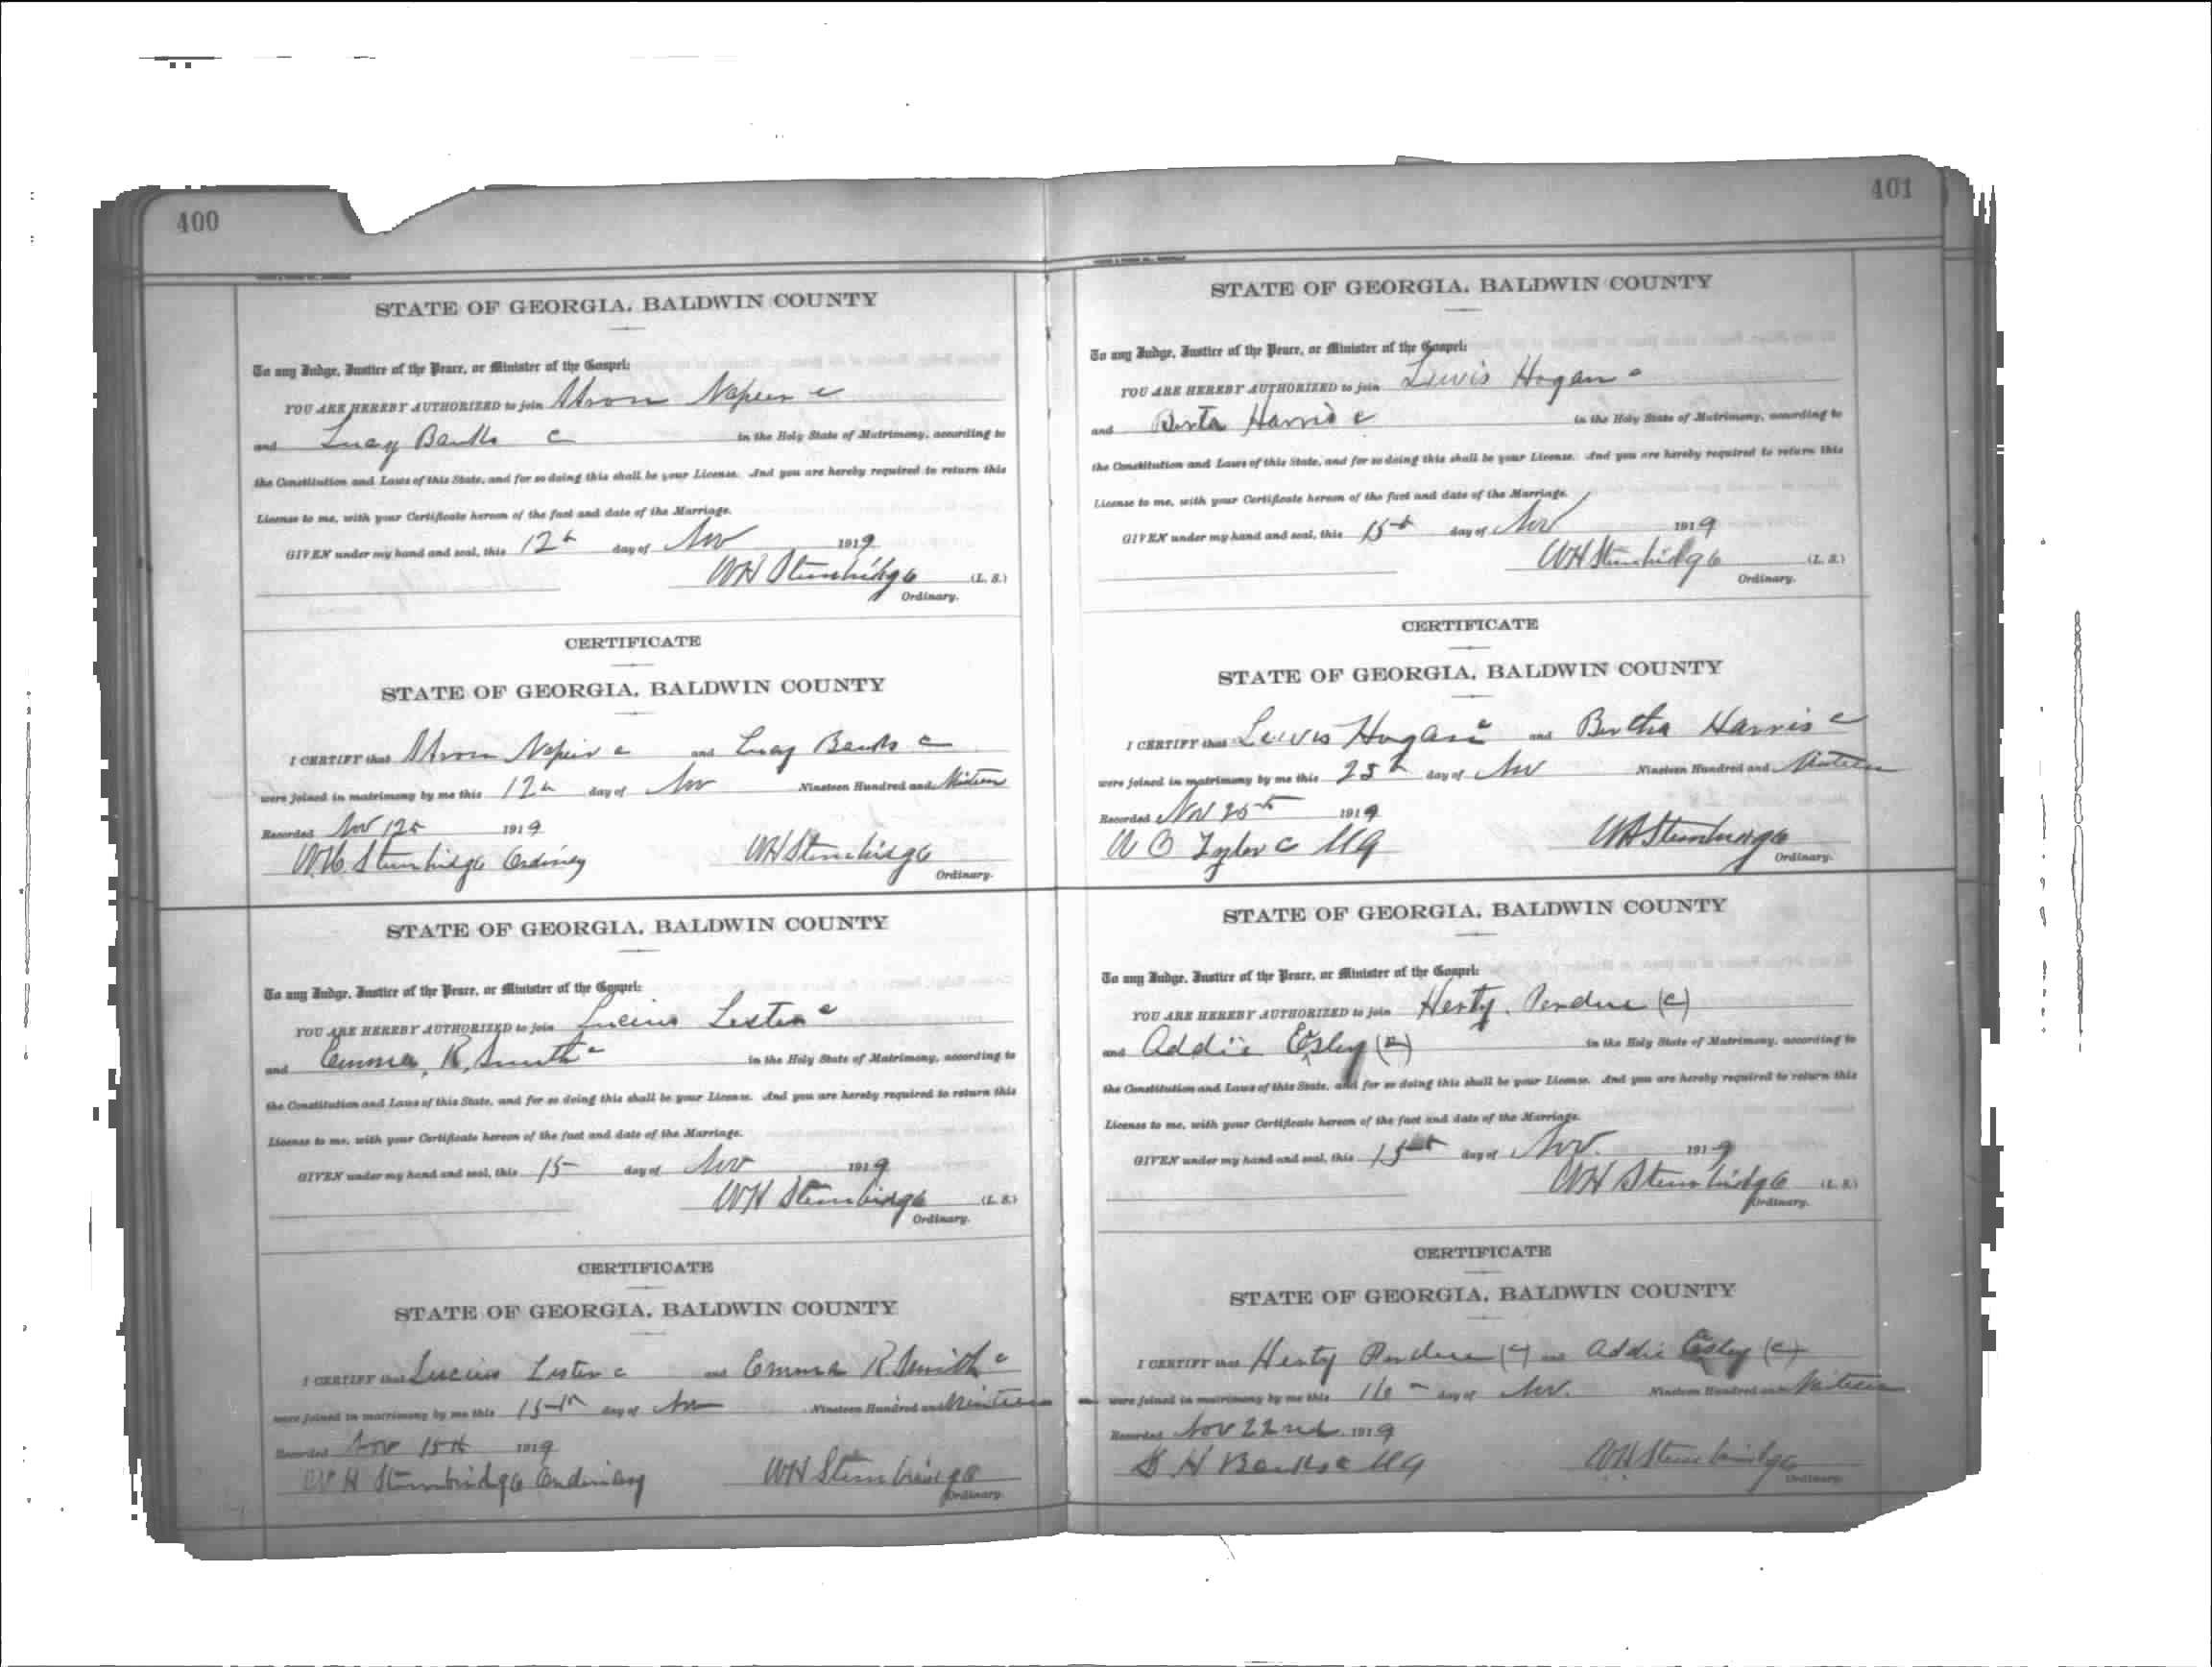 400
STATE OF GEORGIA, BALDWIN COUNTY
To any Judge, Justice of the Peace, or Minister of the Gospel:
YOU ARE HEREBY AUTHORIZED to join Napier c
and Lucy Banks c in the Holy State of Matrimony, according to
the Constitution and Laws of this State, and for so doing this shall be your License. And you are hereby required to return this
License to me, with your Certificate hereon of the fact and date of the Marriage.
GIVEN under my hand and seal, this 12th day of Nov 1919
WH Stembridge (L. S.)
Ordinary.
CERTIFICATE
STATE OF GEORGIA, BALDWIN COUNTY
I CERTIFY that Napier c and Lucy Banks c
were joined in matrimony by me this 12th day of Nov Nineteen Hundred and Nineteen
Recorded Nov 12th 1919
W.H. Stembridge Ordinary WH Stembridge
Ordinary.
STATE OF GEORGIA, BALDWIN COUNTY
To any Judge, Justice of the Peace, or Minister of the Gospel:
YOU ARE HEREBY AUTHORIZED to join Lucius Lester c
and Emma, R, Smith c in the Holy State of Matrimony, according to
the Constitution and Laws of this State, and for so doing this shall be your License. And you are hereby required to return this
License to me, with your Certificate hereon of the fact and date of the Marriage.
GIVEN under my hand and seal, this 15 day of Nov 1919
WH Stembridge (L. S.)
Ordinary.
CERTIFICATE
STATE OF GEORGIA, BALDWIN COUNTY
I CERTIFY that Lucius Lester c and Emma R Smith c
were joined in matrimony by me this 15th day of Nov Nineteen Hundred and Nineteen
Recorded Nov 15th 1919
W H Stembridge Ordinary WH Stembridge
Ordinary.
401
STATE OF GEORGIA, BALDWIN COUNTY
To any Judge, Justice of the Peace, or Minister of the Gospel:
YOU ARE HEREBY AUTHORIZED to join Lewis Hogan c
and Berta Harris c in the Holy State of Matrimony, according to
the Constitution and Laws of this State, and for so doing this shall be your License. And you are hereby required to return this
License to me, with your Certificate hereon of the fact and date of the Marriage.
GIVEN under my hand and seal, this 15th day of Nov 1919
WH Stembridge (L. S.)
Ordinary.
CERTIFICATE
STATE OF GEORGIA, BALDWIN COUNTY
I CERTIFY that Lewis Hogan c and Bertha Harris c
were joined in matrimony by me this 25th day of Nov Nineteen Hundred and Nineteen
Recorded Nov 25th 1919
Tyler c MG WH Stembridge
Ordinary.
STATE OF GEORGIA, BALDWIN COUNTY
To any Judge, Justice of the Peace, or Minister of the Gospel:
YOU ARE HEREBY AUTHORIZED to join Herty. Perdue (c)
and Addie Esley (c) in the Holy State of Matrimony, according to
the Constitution and Laws of this State, and for so doing this shall be your License. And you are hereby required to return this
License to me, with your Certificate hereon of the fact and date of the Marriage.
GIVEN under my hand and seal, this 15th day of Nov. 1919
WH Stembridge (L. S.)
Ordinary.
CERTIFICATE
STATE OF GEORGIA, BALDWIN COUNTY
I CERTIFY that Herty Perdue (c) and Addie Esley (c)
were joined in matrimony by me this 16 day of Nov. Nineteen Hundred and Nineteen
Recorded Nov 22nd 1919
H Banks c MG WH Stembridge
Ordinary.